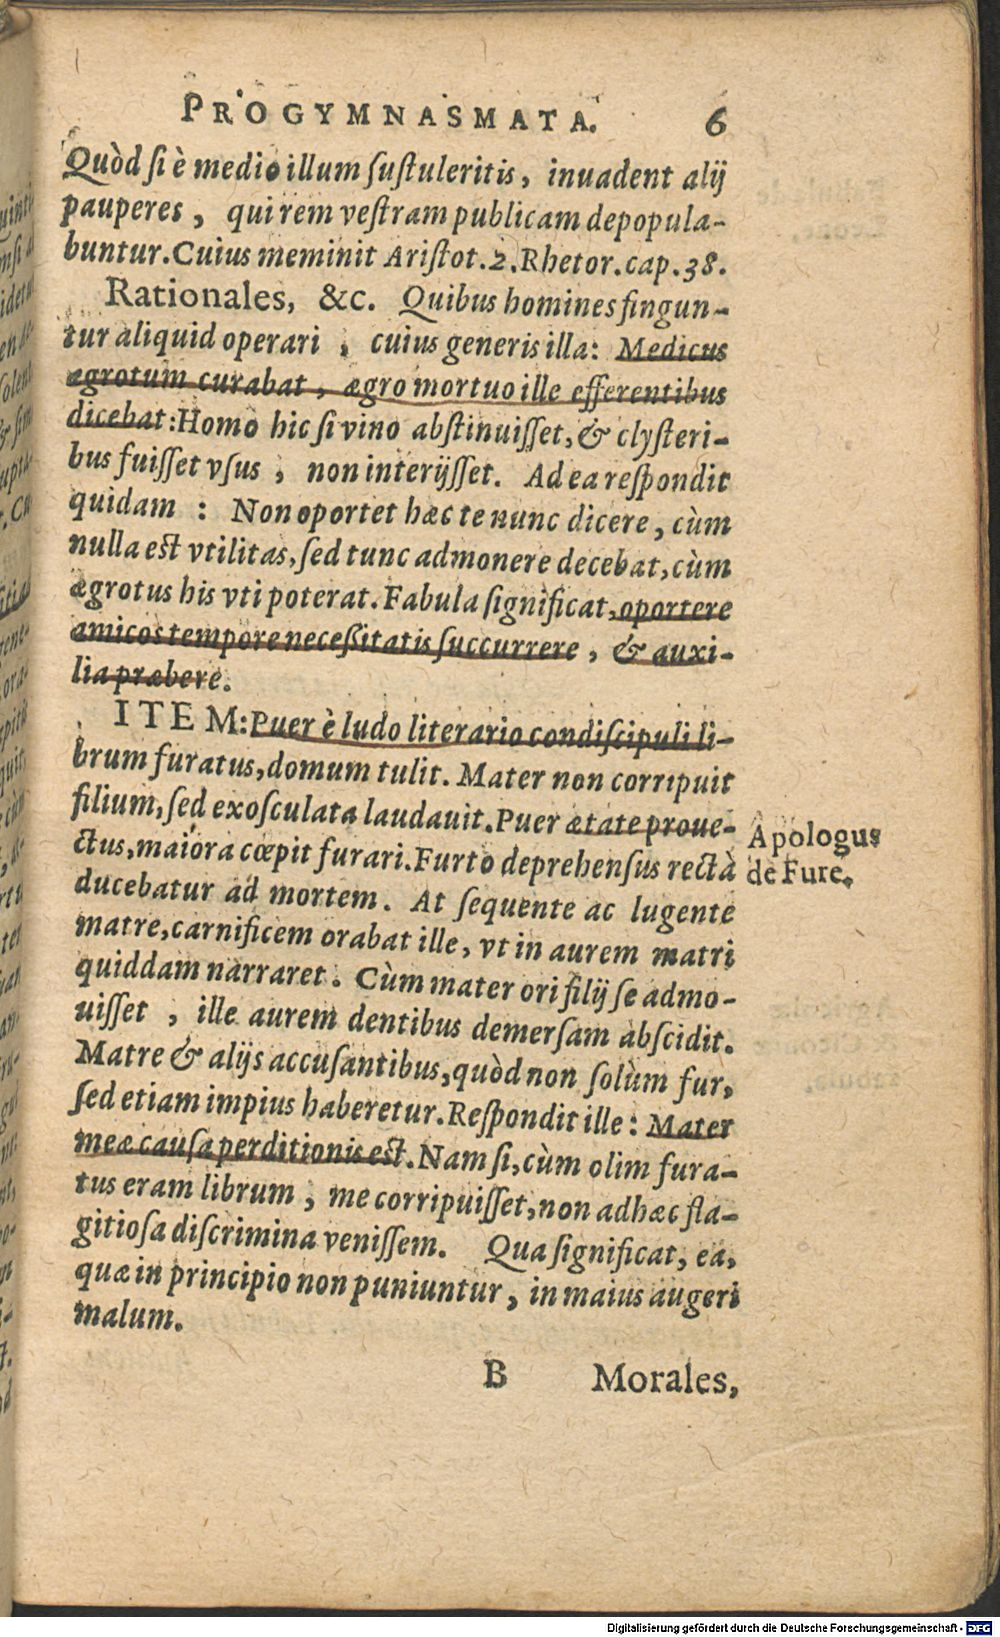 PROGYMNASMATA. 6
Quòd si è medio illum sustuleritis, inuadent alij
pauperes, qui rem vestram publicam depopula-
buntur. Cuius meminit Aristot. 2. Rhetor. cap. 38.
Rationales, &c. Quibus homines fingun-
tur aliquid operari, cuius generis illa: Medicus
ægrotum curabat, ægro mortuo ille efferentibus
dicebat: Homo hic si vino abstinuisset, & clysteri-
bus fuisset vsus, non interijsset. Ad ea respondit
quidam: Non oportet hæc te nunc dicere, cùm
nulla est vtilitas, sed tunc admonere decebat, cùm
ægrotus his vti poterat. Fabula significat, oportere
amicos tempore necessitatis succurrere, & auxi-
lia præbere.
ITEM: Puer è ludo literario condiscipuli li-
brum furatus, domum tulit. Mater non corripuit
filium, sed exosculata laudauit. Puer ætate proue-
ctus, maiora cœpit furari. Furto deprehensus rectà
ducebatur ad mortem. At sequente ac lugente
matre, carnificem orabat ille, vt in aurem matri
quiddam narraret. Cùm mater ori filij se admo-
uisset, ille aurem dentibus demersam abscidit.
Matre & alijs accusantibus, quòd non solùm fur,
sed etiam impius haberetur. Respondit ille: Mater
meæ causa perditionis est. Nam si, cùm olim fura-
tus eram librum, me corripuisset, non ad hæc fla-
gitiosa discrimina venissem. Qua significat, ea,
quæ in principio non puniuntur, in maius augeri
malum.
Apologus
de Fure.
B Morales,
Digitalisierung gefördert durch die Deutsche Forschungsgemeinschaft - DFG